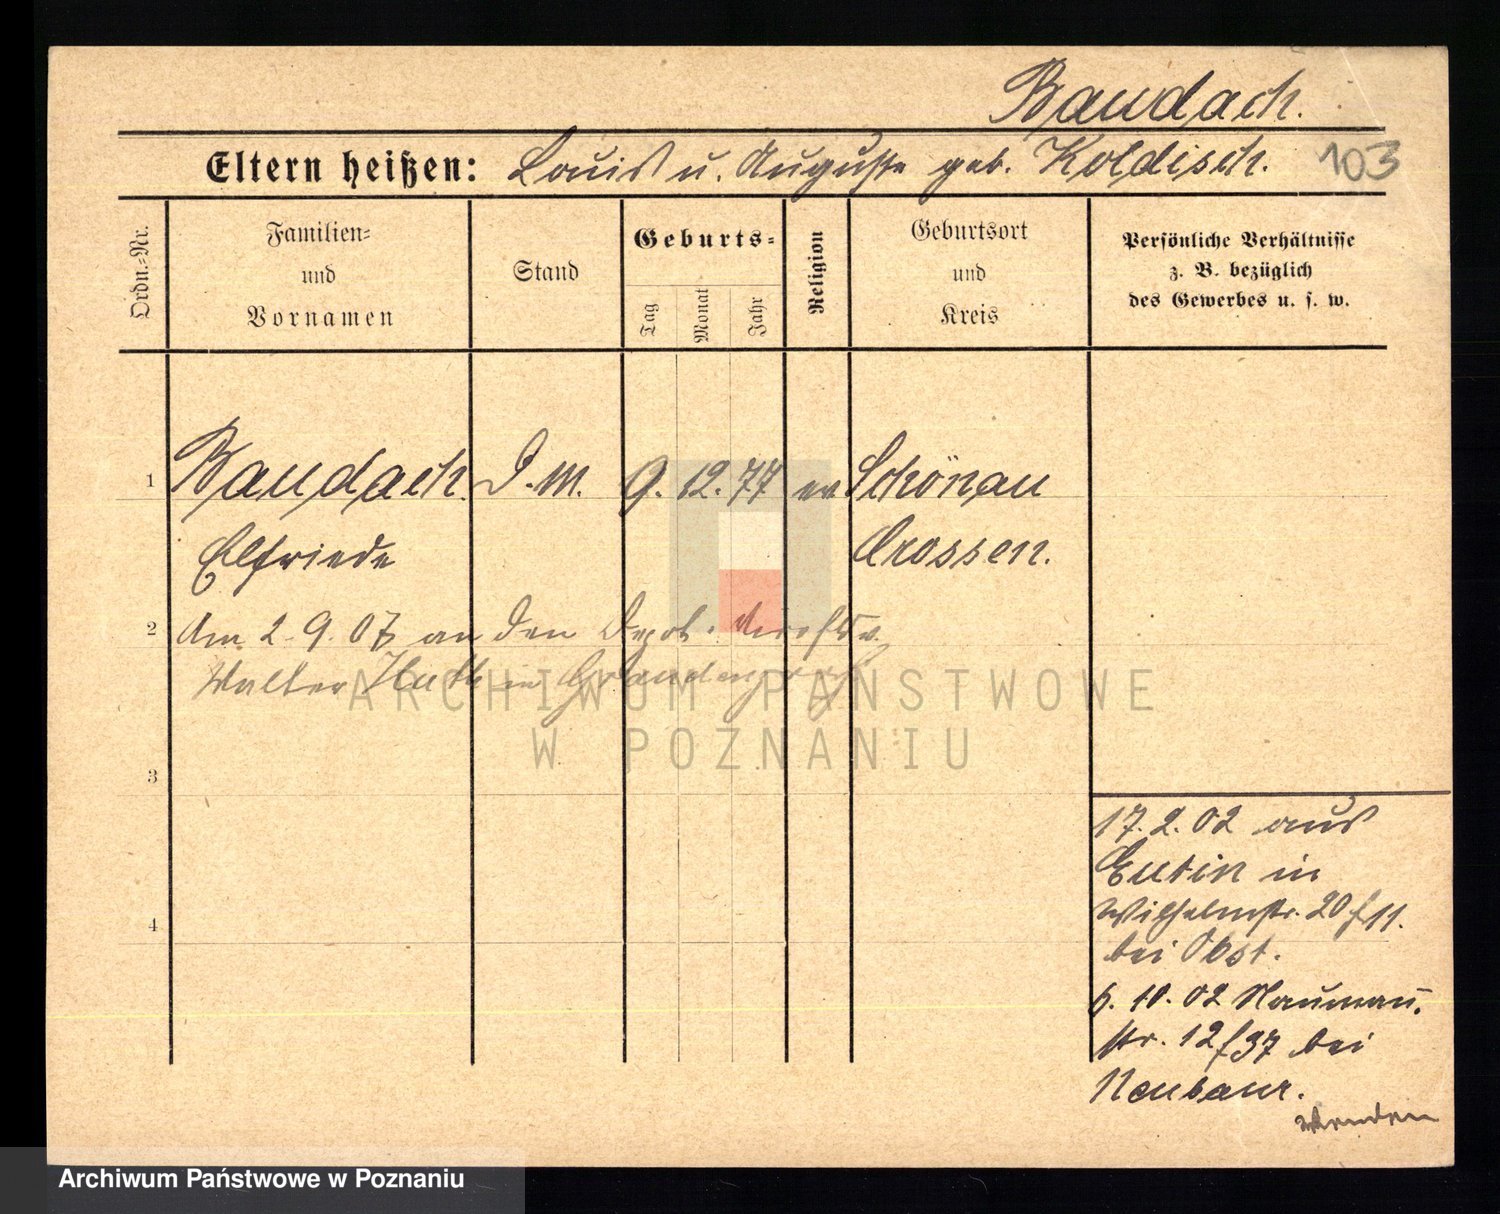 Baudach.
Eltern heißen: Louis u. Auguste geb. Koldisch. 103
Ordn.-Nr.
Familien-
und
Vornamen
Stand
Geburts-
Tag
Monat
Jahr
Religion
Geburtsort
und
Kreis
Persönliche Verhältnisse
z. B. bezüglich
des Gewerbes u. s. w.
1 Baudach. D. M. 9. 12. 77 ev Schönau
Elfriede Crossen.
2 Am 2. 9. 07 an den
Walter Huth in
3
4
17. 2. 02 aus
Eutin in
Wilhelmstr. 20 f 11.
bei Obst.
6. 10. 02 Nauman̄.
str. 12 f 37 bei
Neubaur.
wenden
ARCHIWUM PAŃSTWOWE
W POZNANIU
Archiwum Państwowe w Poznaniu